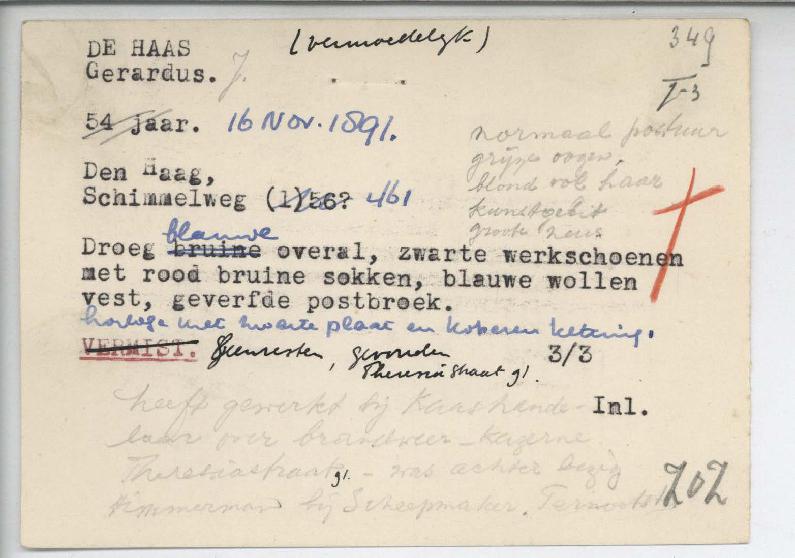 DE HAAS (vermoedelyk) 349
Gerardus. J.
I-3
54 jaar. 16 Nov. 1891.
normaal postuur
grijze oogen,
blond vol haar
kunstgebit
groote neus
Den Haag,
Schimmelweg (1)56? 461
blauwe
Droeg bruine overal, zwarte werkschoenen
met rood bruine sokken, blauwe wollen
vest, geverfde postbroek.
horloge met zwarte plaat en koperen ketting.
VERMIST. Beenresten, gevonden 3/3
Theresiastraat gl.
heeft gewerkt bij Kaashande- Inl.
laar over brandweer-kazerne
Theresiastraat gl. - was achter bezig
timmerman bij Scheepmaker,
ZoZ